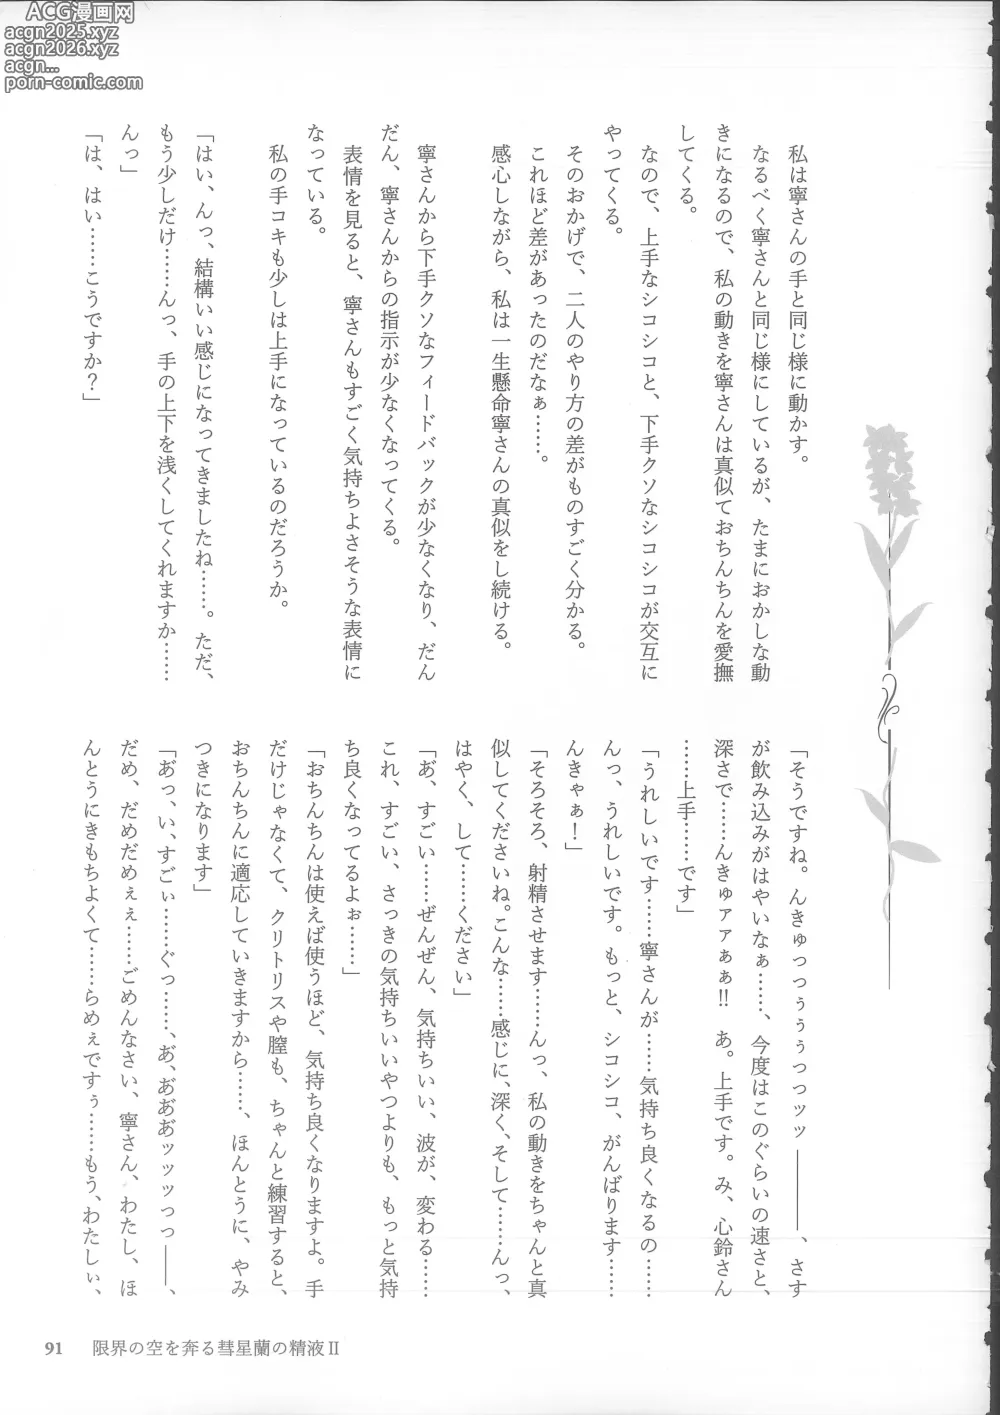 ACG漫画网
acgn2025.xyz
acgn2026.xyz
acgn...
porn-comic.com
私は寧さんの手と同じ様に動かす。
なるべく寧さんと同じ様にしているが、たまにおかしな動
きになるので、私の動きを寧さんは真似ておちんちんを愛撫
してくる。
なので、上手なシコシコと、下手クソなシコシコが交互に
やってくる。
そのおかげで、二人のやり方の差がものすごく分かる。
これほど差があったのだなぁ……。
感心しながら、私は一生懸命寧さんの真似をし続ける。
寧さんから下手クソなフィードバックが少なくなり、だん
だん、寧さんからの指示が少なくなってくる。
表情を見ると、寧さんもすごく気持ちよさそうな表情に
なっている。
私の手コキも少しは上手になっているのだろうか。
「はい、んっ、結構いい感じになってきましたね……。ただ、
もう少しだけ……んっ、手の上下を浅くしてくれますか……
んっ」
「は、はい……こうですか？」
「そうですね。んきゅっっぅぅぅっっッッ ――――、さす
が飲み込みがはやいなぁ……、今度はこのぐらいの速さと、
深さで……んきゅァァぁぁ!!　あ。上手です。み、心鈴さん
……上手……です」
「うれしいです……寧さんが……気持ち良くなるの……
んっ、うれしいです。もっと、シコシコ、がんばります……
んきゃぁ！」
「そろそろ、射精させます……んっ、私の動きをちゃんと真
似してくださいね。こんな……感じに、深く、そして……んっ、
はやく、して……ください」
「あ゛、すごい……ぜんぜん、気持ちいい、波が、変わる……
これ、すごい、さっきの気持ちいいやつよりも、もっと気持
ち良くなってるよぉ……」
「おちんちんは使えば使うほど、気持ち良くなりますよ。手
だけじゃなくて、クリトリスや膣も、ちゃんと練習すると、
おちんちんに適応していきますから……、ほんとうに、やみ
つきになります」
「あ゛っ、い、すごぃ……ぐっ……、あ゛、あ゛あ゛あ゛ッッッっっ ――、
だめ、だめだめぇぇ……ごめんなさい、寧さん、わたし、ほ
んとうにきもちよくて……らめぇですぅ……もう、わたしぃ、
91　限界の空を奔る彗星蘭の精液Ⅱ